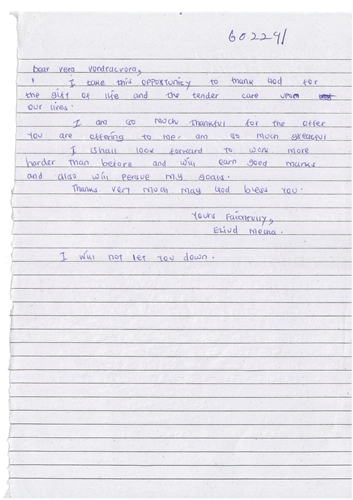 602291
Dear Vera Vondracrora,
I take this opportunity to thank God for
the gift of life and the tender care upon
our lives.
I am so much thankful for the offer
you are offering to me. am so much greatful
I shall look forward to work more
harder than before and will earn good marks
and also will persue my goals.
Thanks very much may God bless you.
Yours Faithfully,
I will not let you down.